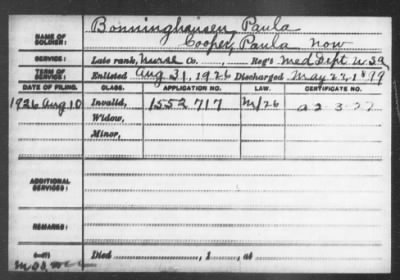 Bonninghausen, Paula
NAME OF SOLDIER: Cooper, Paula now
SERVICE: Late rank, nurse Co. , Reg't Med Dept U.S.A.
TERM OF SERVICE: Enlisted Aug 31, Discharged May 22, 1899
DATE OF FILING. CLASS. APPLICATION NO. LAW. CERTIFICATE NO.
1926 Aug 10 Invalid, 1552717 M/26
Widow,
Minor,
ADDITIONAL SERVICES:
REMARKS:
Died , 1 , at